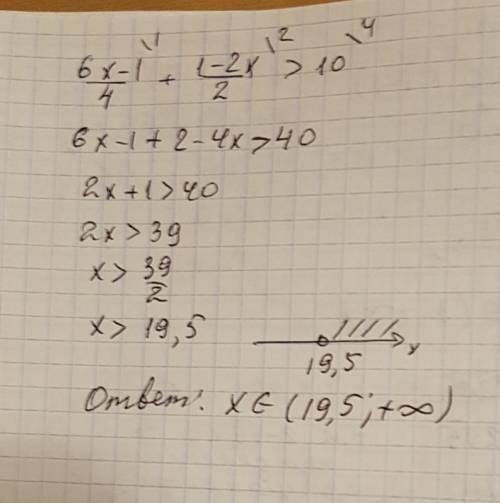 (6x-1)/4 \1 + (1-2x)/2 \2 > 10 \4
6x-1+2-4x>40
2x+1>40
2x>39
x> 39/2
x> 19,5
19,5 x
Ответ: x∈(19,5;+∞)